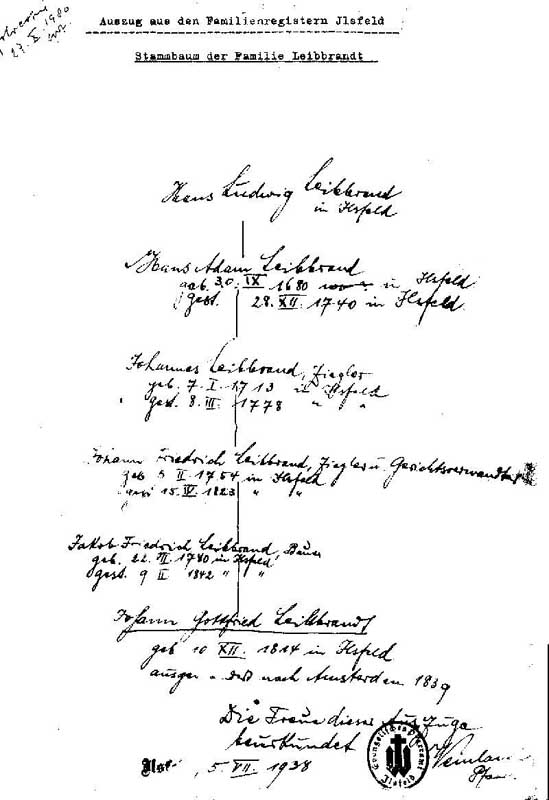 27. X 1980
Auszug aus den Familienregistern Jlsfeld
Stammbaum der Familie Leibbrandt
Hans Ludwig Leibbrand
in Ilsfeld
Hans Adam Leibbrand
geb. 30. IX 1680 in Ilsfeld
gest. 28. XII. 1740 in Ilsfeld.
Johannes Leibbrand, Ziegler
geb. 7. I. 1713 in Ilsfeld
gest. 8. III. 1778 " "
Johann Friedrich Leibbrand, Ziegler u. Gerichtsverwandter
geb 5 II. 1754 in Ilsfeld
gest 15. IV. 1823 " "
Jakob Friedrich Leibbrand, Bauer
geb. 22. III. 1780 in Ilsfeld
gest. 9 II 1842 " "
Johann Gottfried Leibbrandt
geb 10 XII. 1814 in Ilsfeld
nach Amsterdam 1839
Die Treue dieser Auszuge
beurkundet
Evangelisches Pfarramt
Ilsfeld
5. VII. 1938